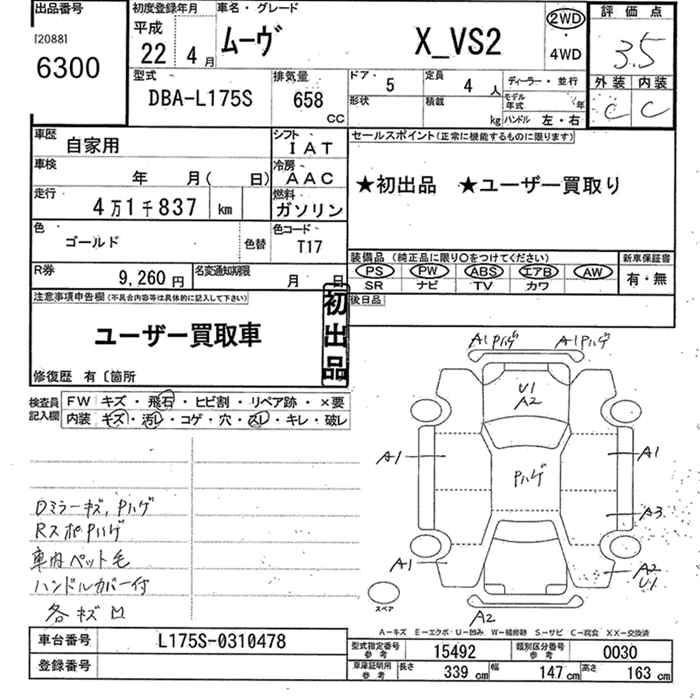 出品番号
[2088]
6300
初度登録年月
平成
22 年 4 月
車名・グレード
ムーヴ X_VS2
2WD
・
4WD
評価点
3.5
外装 内装
C C
型式
DBA-L175S
排気量
658
CC
ドア・ 5
定員 4 人
形状
積載 kg
ディーラー・並行
モデル年式 年
ハンドル 左・右
車歴 自家用
シフト IAT
車検 年 月( 日)
冷房 AAC
走行 4万1千837 km
燃料 ガソリン
色 ゴールド 色替
色コード T17
R券 9,260 円
名変通知期限 月 日
セールスポイント(正常に機能するものに限ります)
★初出品 ★ユーザー買取り
装備品 (純正品に限り〇をつけてください)
PS PW ABS エアB AW
SR ナビ TV カワ
新車保証書
有・無
後日品
注意事項申告欄(不具合内容等は具体的に記入して下さい)
ユーザー買取車
初出品
修復歴 有〔箇所
検査員記入欄
FW キズ・飛石・ヒビ割・リペア跡・×要
内装 キズ・汚レ・コゲ・穴・スレ・キレ・破レ
Dミラーキズ,Pハゲ
RスポPハゲ
車内ペット毛
ハンドルカバー付
各キズ凹
A1Pハゲ A1Pハゲ
U1
A2
A1 A1
Pハゲ
A3
A1
A2
U1
A2
スペア
A-キズ E-エクボ U-凹み W-補修跡 S-サビ C-腐食 XX-交換済
車台番号 L175S-0310478
登録番号
型式指定番号 参考 15492
類別区分番号 参考 0030
車庫証明用 参考 長さ 339 cm 幅 147 cm 高さ 163 cm